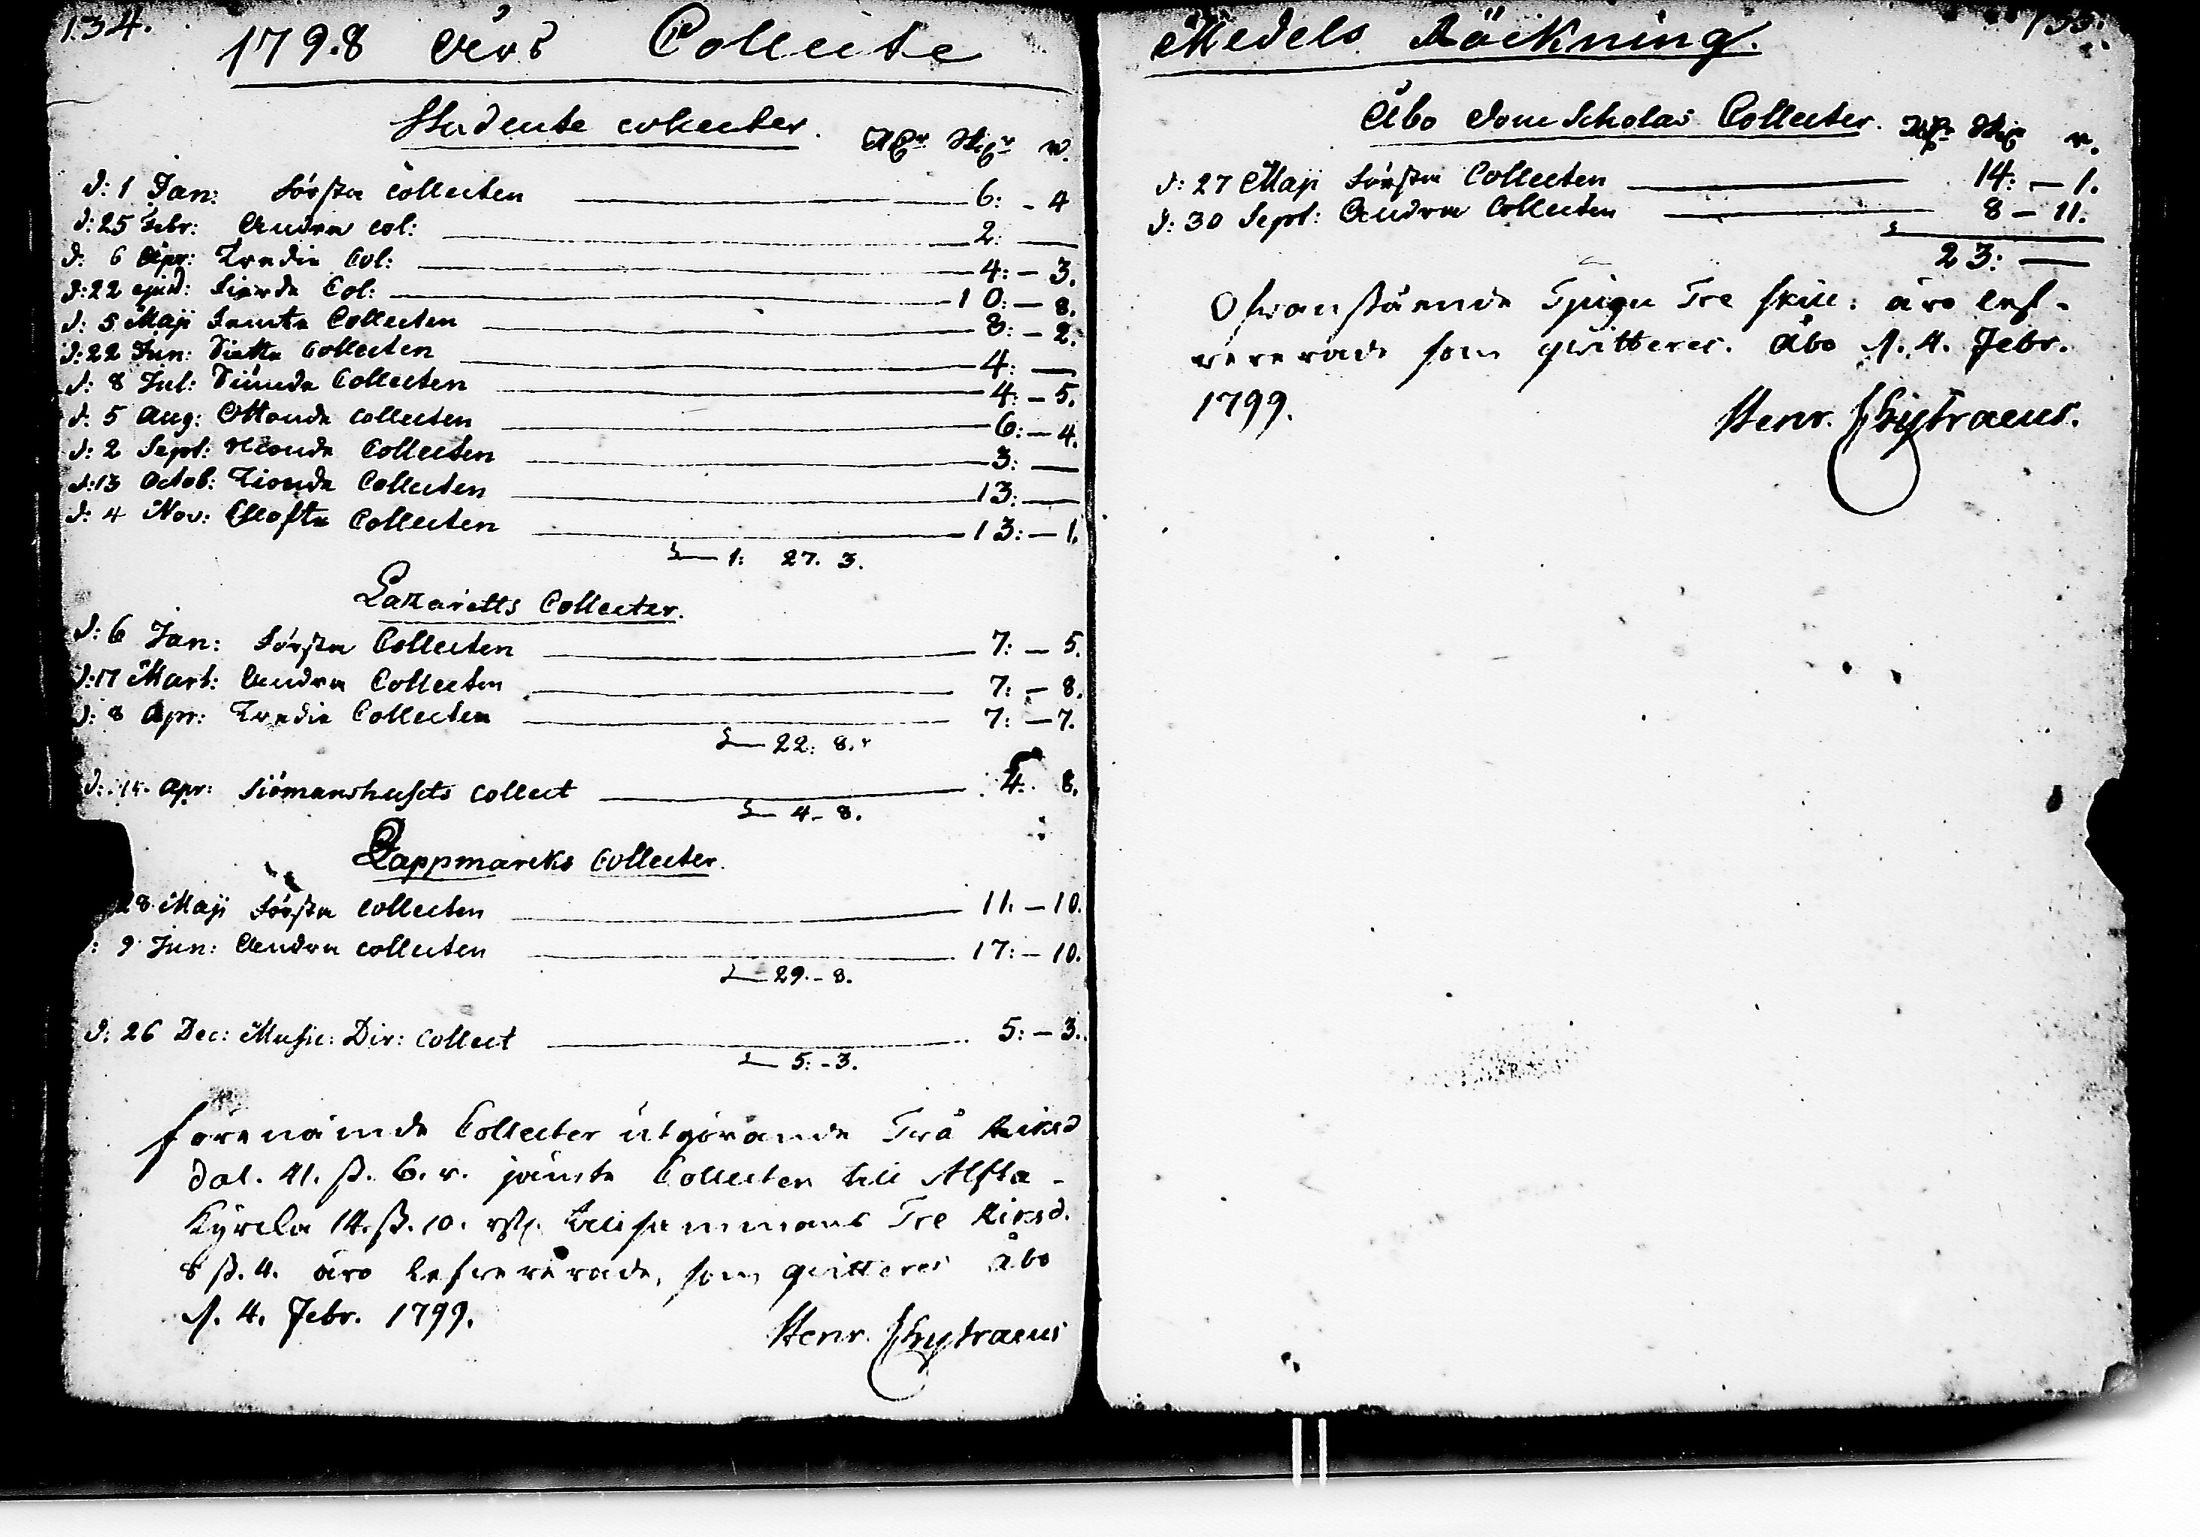 134.
1798 Års Collecte
Studente collecter. Rdr Skr r.
d: 1 Jan: Första Collecten 6: - 4
d: 25 Febr: Andra Col: 2: —
d: 6 Apr: Tredie Col: 4: - 3.
d: 22 ejusd: Fierde Col: 10: - 8.
d: 5 Maji Femte Collecten 8: - 2.
d: 22 Jun: Siette Collecten 4: —
d: 8 Jul: Siunde Collecten 4: - 5.
d. 5 Aug: Ottonde Collecten 6: - 4.
d: 2 Sept: Nionde Collecten 3: —
d: 13 Octob: Tionde Collecten 13: —
d: 4 Nov: Ellofte Collecten 13: - 1.
S— 1: 27. 3.
Lazaretts Collecter.
d: 6 Jan: Första Collecten 7: - 5.
d: 17 Mart: Andra Collecten 7: - 8.
d: 8 Apr: Tredie Collecten 7: - 7.
S— 22: 8.
d: 15. Apr: Siömanshusets Collect 4: 8.
S— 4 - 8.
Lappmarcks Collecter.
28 Maji Första Collecten 11. - 10.
: 9 Jun: Andra Collecten 17: - 10.
S— 29. - 8.
d: 26 Dec: Music: Dir: Collect 5: - 3.
S— 5: - 3.
förenämde Collecter utgörande Två Riksd
dal. 41. ß. 6. r. jämte Collecten till Alfta-
Kyrcka 14. ß. 10. rst. tillsammans Tre Riksd.
8 ß. 4. äro lefvererade, som qvitteres Åbo
d. 4. Febr. 1799.
Henr. Chytraeus
Medels Räckning.
Åbo Dom Scholas Collecter. Rdr Skr r.
d: 27 Maji Första Collecten 14: - 1.
d: 30 Sept: Andra Collecten 8 - 11.
S 23: —
Ofvanstående Tjugu Tre skill: äro lef-
vererade som qvitteres. Åbo d. 4. Febr.
1799.
Henr. Chytraeus.